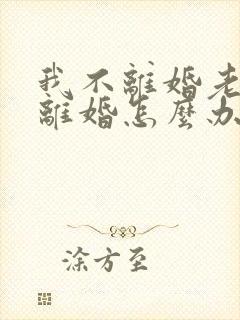 我不離婚老
離婚怎麼办
涂方至